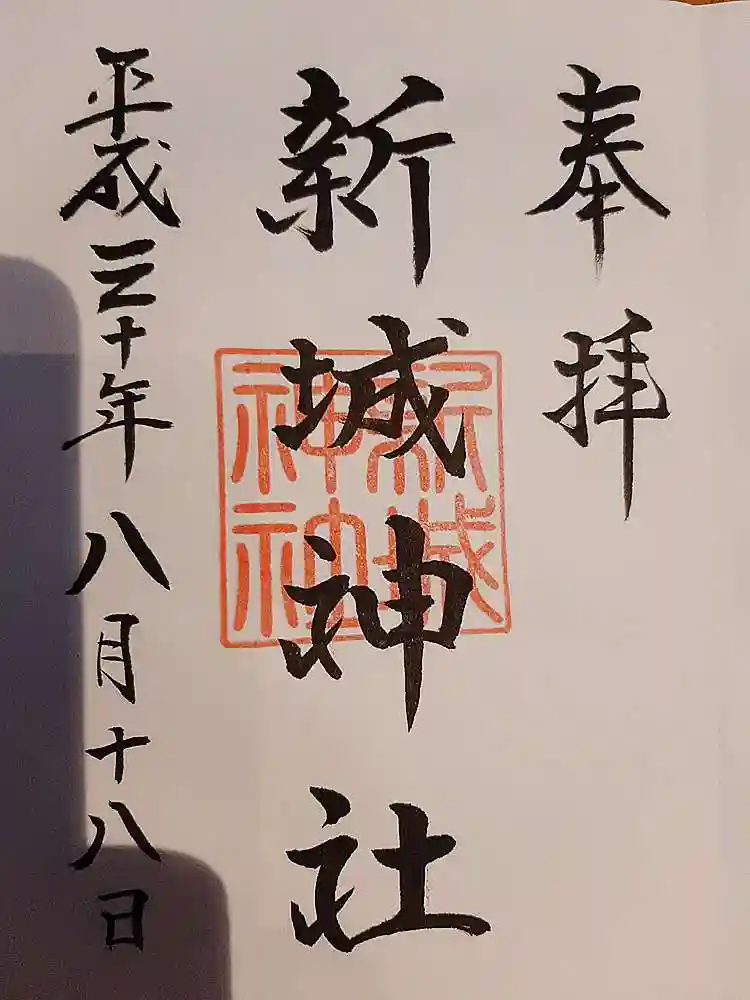 奉拝
新城神社
新城
神社
平成三十年八月十八日